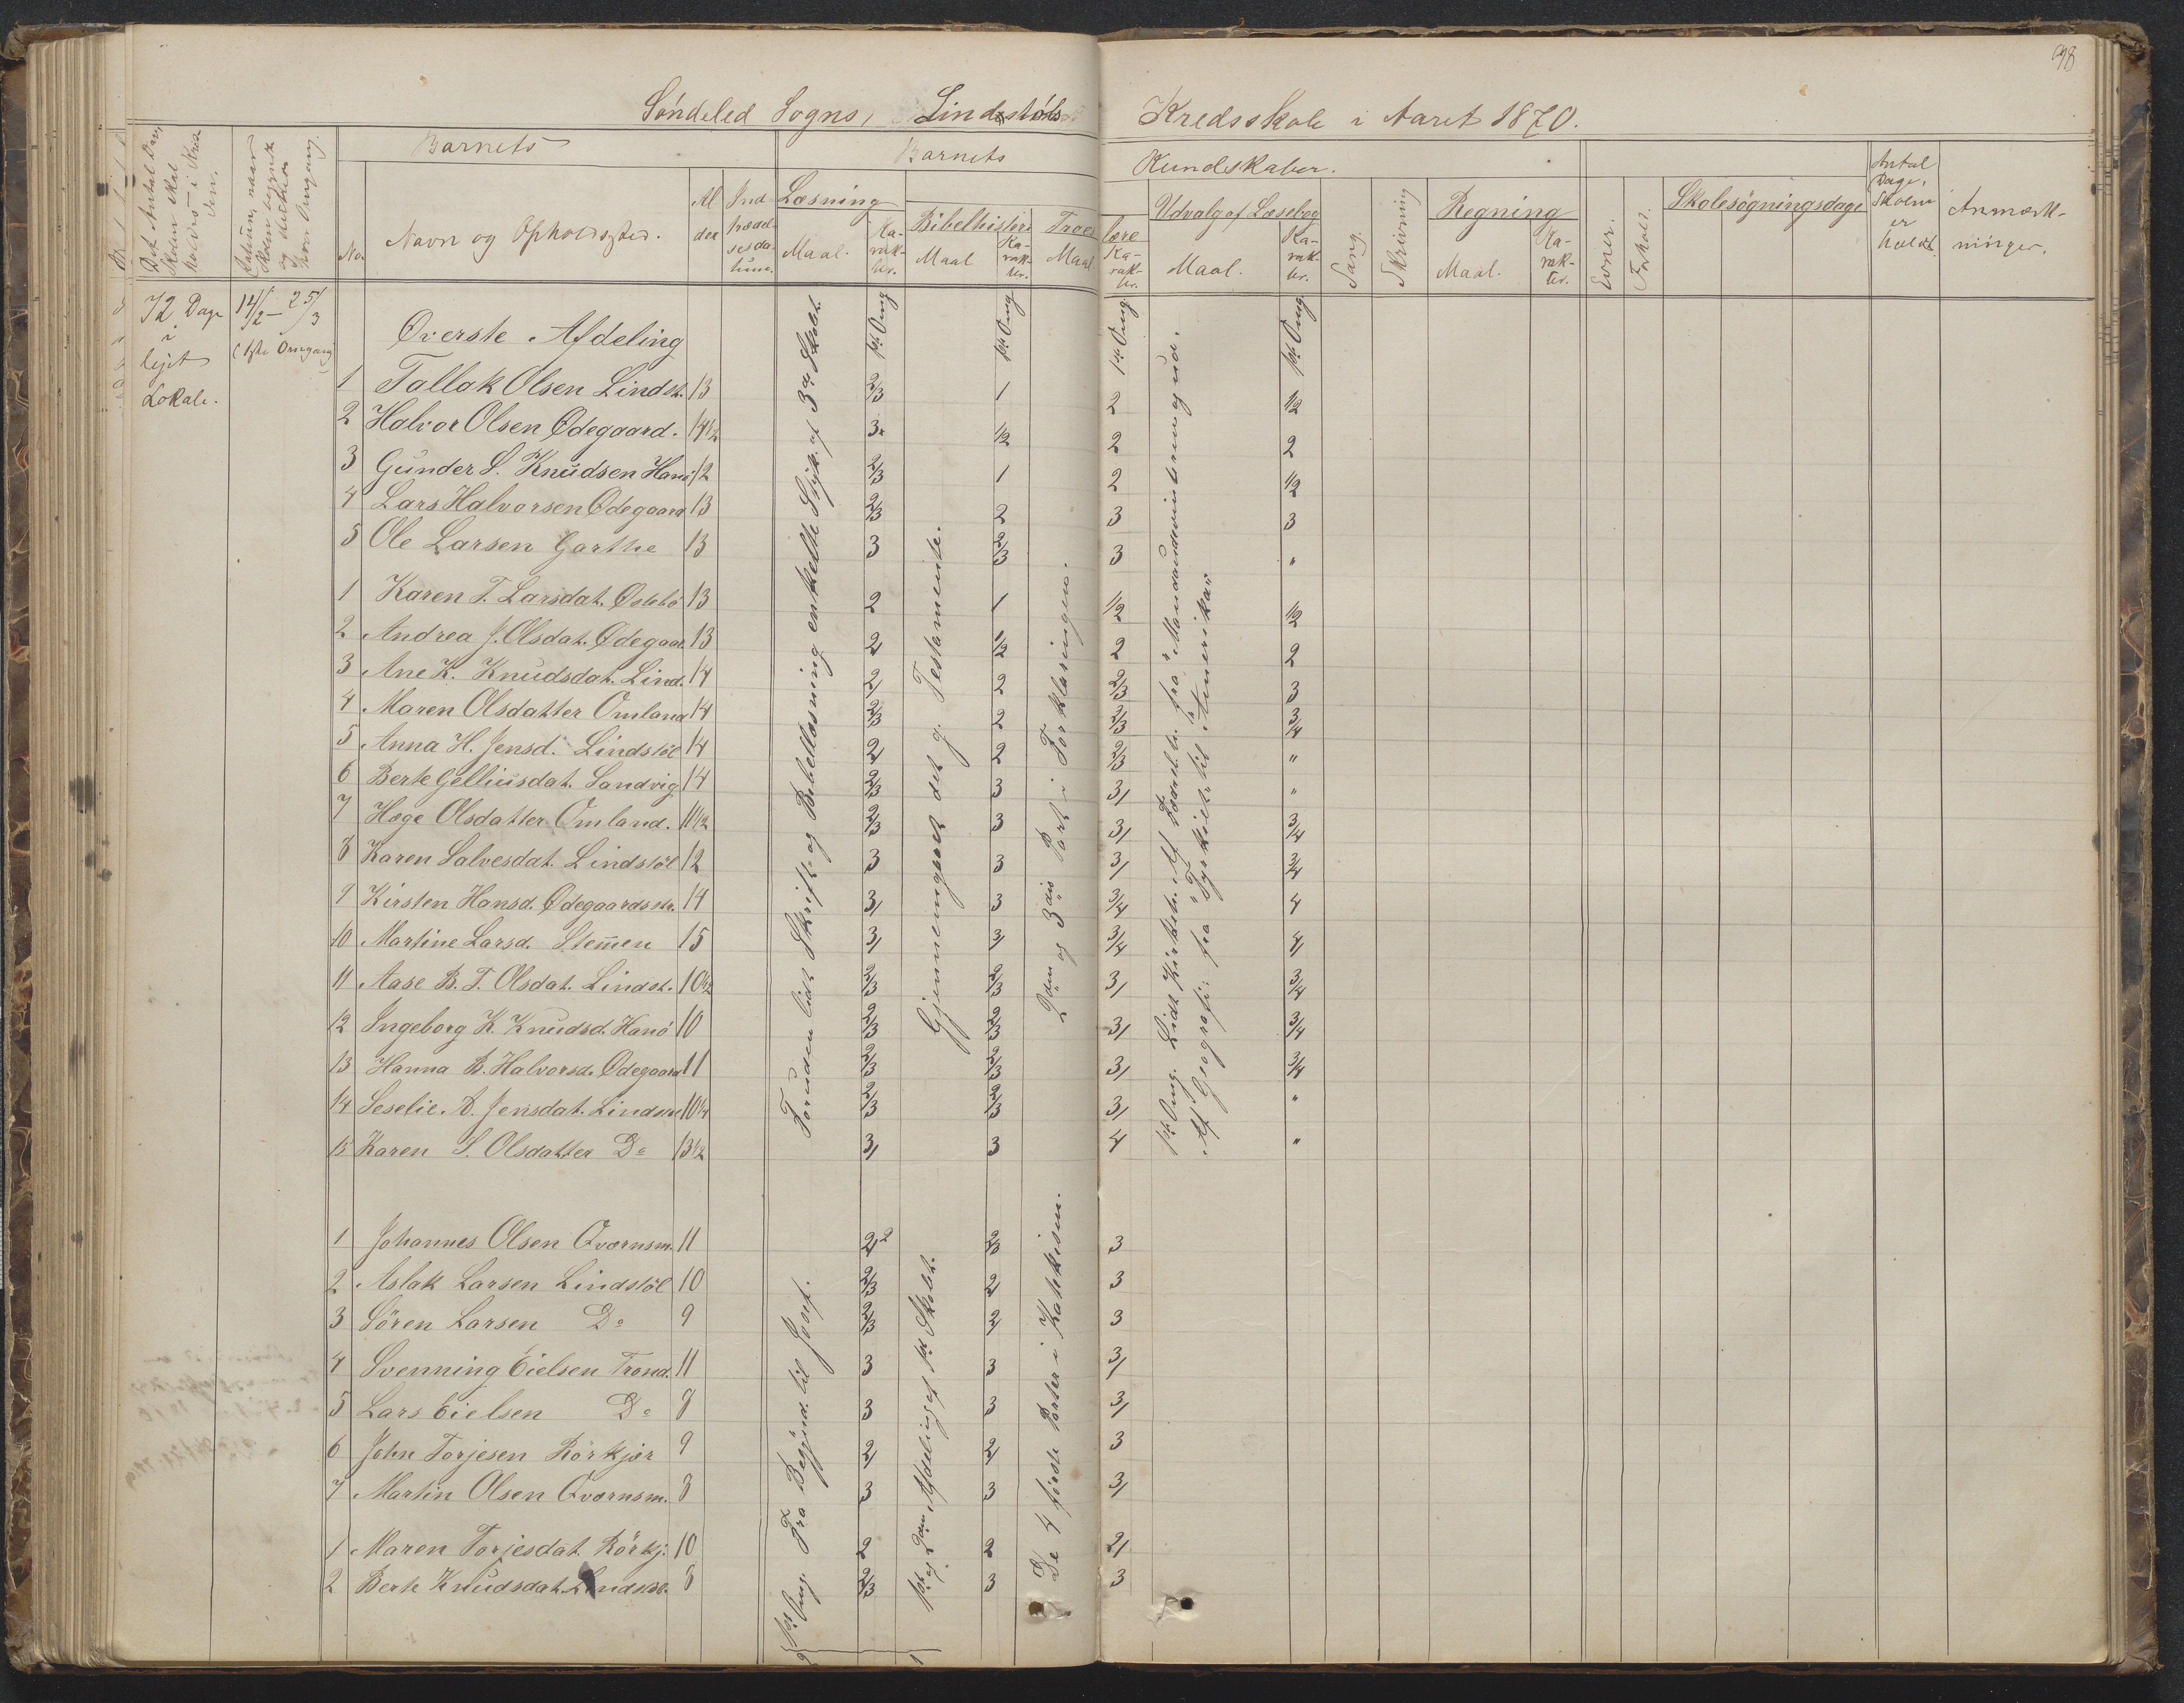 98
Söndeled Sogns, Lindstöls Kredsskole i Aaret 1870.
Det Antal Dage, Skolen skal holdes i Kredsen.
Datum, naar Skolen begynte og sluttes hver Omgang.
Barnets
No.
Navn og Opholdssted.
Alder
Indtrædelsesdatum.
Barnets Kundskaber.
Læsning
Maal.
Karakter.
Bibelhistorie
Maal
Karakter.
Troeslære
Maal
Karakter.
Udvalg af Læsebog
Maal.
Karakter.
Sang.
Skrivning
Regning
Maal.
Karakter.
Evner.
Forhold.
Skolesögningsdage
Antal Dage, Skolen er holdt.
Anmærkninger.
72 Dage i lejet Lokale.
14/2 – 25/3
(1ste Omgang)
Øverste Afdeling
1ste Omg 1ste Omg 1ste Omg 1ste Omg
1 Tallak Olsen Lindst. 13 2/3 1 2 1/2
2 Halvor Olsen Ødegaard. 14 1/2 3 1/2 2 2
3 Gunder S. Knudsen Hanö 12 2/3 1 2 1/2
4 Lars Halvorsen Ødegaard 13 2/3 2 3 3
5 Ole Larsen Garthe 13 3 2/3 3 "
1 Karen T. Larsdat. Østebö 13 2 1 1/2 1/2
2 Andrea J. Olsdat. Ødegaar. 13 2/ 1/2 2 2
3 Ane K. Knudsdat. Lind. 14 2/ 2 2/3 3
4 Maren Olsdatter Omland 14 2/3 2 2/3 3/4
5 Anna H. Jensd. Lindstöl 14 2/ 2 2/3 "
6 Berte Gelliusdat. Sandvig 14 2/3 3 3/ "
7 Hæge Olsdatter Omland. 11 1/2 2/3 3 3/ 3/4
8 Karen Salvesdat. Lindstöl 12 3 3 3/ 3/4
9 Kirsten Hansd. Ødegaardsstr. 14 3/ 3 3/4 4
10 Martine Larsd. Stem̄en 15 3/ 3/ 3/4 4/
11 Aase B. T. Olsdat. Lindst. 10 1/2 2/3 2/3 3/ 3/4
12 Ingeborg K. Knudsd. Hanö 10 2/3 2/3 3/ 3/4
13 Hanna B. Halvorsd. Ødegaard 11 2/3 2/3 3/ 3/4
14 Seselie A. Jensdat. Lindstöl 10 1/4 2/3 2/3 3/ "
15 Karen S. Olsdatter Do 13 1/2 3/ 3 4 "
Foruden lidt Skrift- og Bibellæsning enkelte Styk. af 3die Skolet.
Gjennemgaaet det g. Testamente.
2den og 3die Part i Forklaringen.
1ste Omg. Lidt Kirkeh.
Af Geografi: fra "Tyrkiet" til "Amerika"
1 Johannes Olsen Qværnsm. 11 2/ 2 2/3 3
2 Aslak Larsen Lindstöl 10 2/3 2/ 3
3 Sören Larsen Do 9 2/3 2/ 3
4 Svenning Eielsen Trond. 11 3 3 3/
5 Lars Eielsen Do 8 3 3 3/
6 John Torjesen Rörkjær 9 2/ 2/ 3
7 Martin Olsen Qværnsm. 8 3 3 3/
1 Maren Torjesdat. Rörkj. 10 2 2 2/
2 Berte Knudsdat. Lindstöl. 8 2/3 3 3
1ste Omg. Fra Begynd. til Josef.
1ste og 2den Afdeling af 1ste Skolet.
De 4 förste Parter i Katekism.